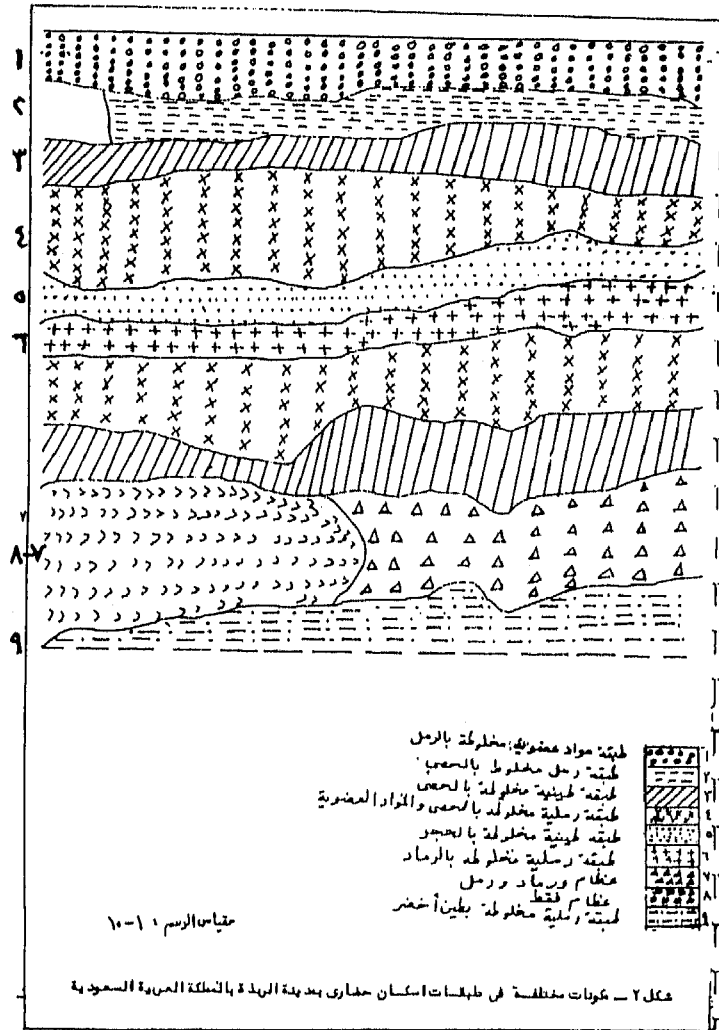 ١
٢
٣
٤
٥
٦
٨-٧
٩
طبقة مواد عضوية مخلوطة بالرمل
طبقة رمل مخلوط بالحصى
طبقة طينية مخلوطة بالحصى
طبقة رملية مخلوطة بالحصى والمواد العضوية
طبقة طينية مخلوطة بالحجر
طبقة رملية مخلوطة بالرماد
عظام ورماد ورمل
عظام فقط
طبقة رملية مخلوطة بطين أخضر
١
٢
٣
٤
٥
٦
٧
٨
٩
مقياس الرسم : ١-١٠
شكل ٢ – مكونات مختلفة في طبقات اسكان حضارى بمدينة الربذة بالمملكة العربية السعودية